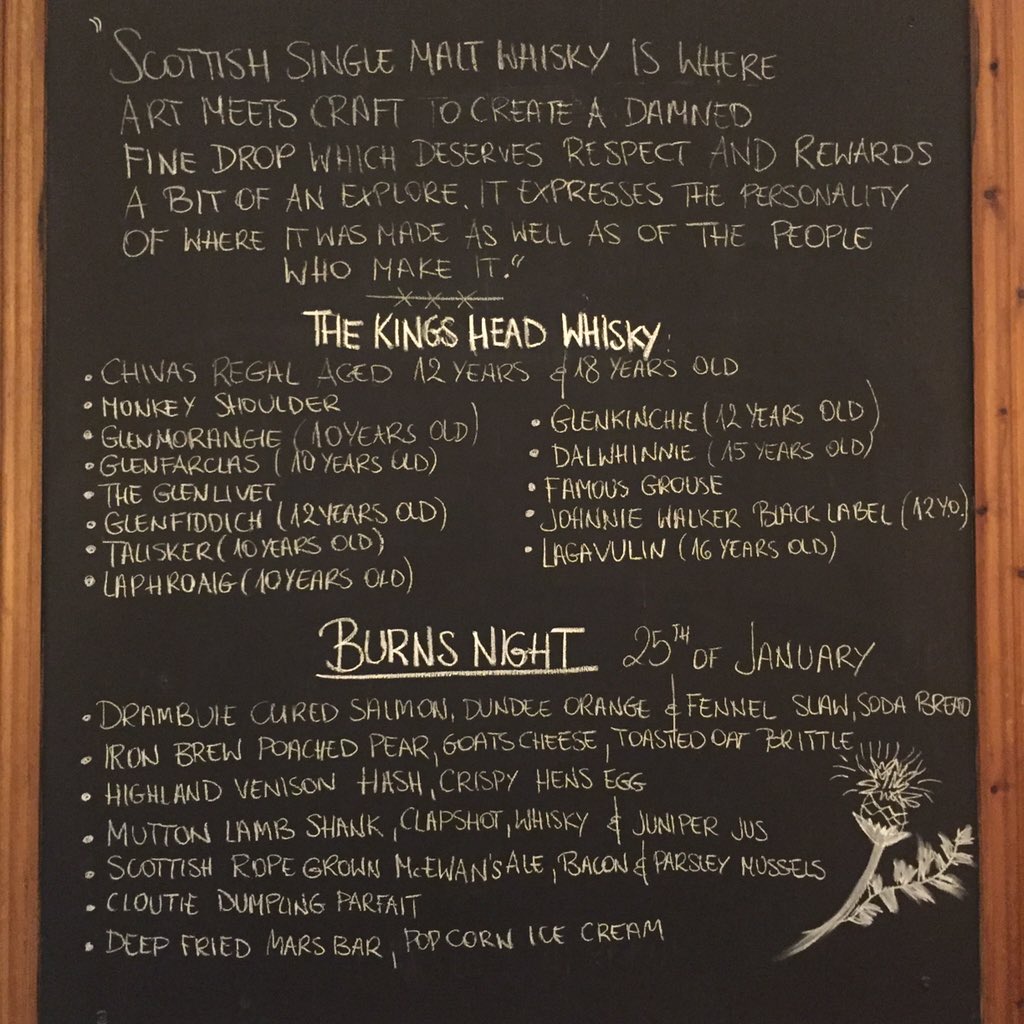 "SCOTTISH SINGLE MALT WHISKY IS WHERE
ART MEETS CRAFT TO CREATE A DAMNED
FINE DROP WHICH DESERVES RESPECT AND REWARDS
A BIT OF AN EXPLORE. IT EXPRESSES THE PERSONALITY
OF WHERE IT WAS MADE AS WELL AS OF THE PEOPLE
WHO MAKE IT."
THE KINGS HEAD WHISKY
• CHIVAS REGAL AGED 12 YEARS & 18 YEARS OLD
• MONKEY SHOULDER
• GLENMORANGIE (10 YEARS OLD)
• GLENFARCLAS (10 YEARS OLD)
• THE GLENLIVET
• GLENFIDDICH (12 YEARS OLD)
• TALISKER (10 YEARS OLD)
• LAPHROAIG (10 YEARS OLD)
• GLENKINCHIE (12 YEARS OLD)
• DALWHINNIE (15 YEARS OLD)
• FAMOUS GROUSE
• JOHNNIE WALKER BLACK LABEL (12 Y.O.)
• LAGAVULIN (16 YEARS OLD)
BURNS NIGHT 25TH OF JANUARY
• DRAMBUIE CURED SALMON, DUNDEE ORANGE & FENNEL SLAW, SODA BREAD
• IRON BREW POACHED PEAR, GOATS CHEESE, TOASTED OAT BRITTLE
• HIGHLAND VENISON HASH, CRISPY HENS EGG
• MUTTON LAMB SHANK, CLAPSHOT, WHISKY & JUNIPER JUS
• SCOTTISH ROPE GROWN McEWAN'S ALE, BACON & PARSLEY MUSSELS
• CLOUTIE DUMPLING PARFAIT
• DEEP FRIED MARS BAR, POPCORN ICE CREAM